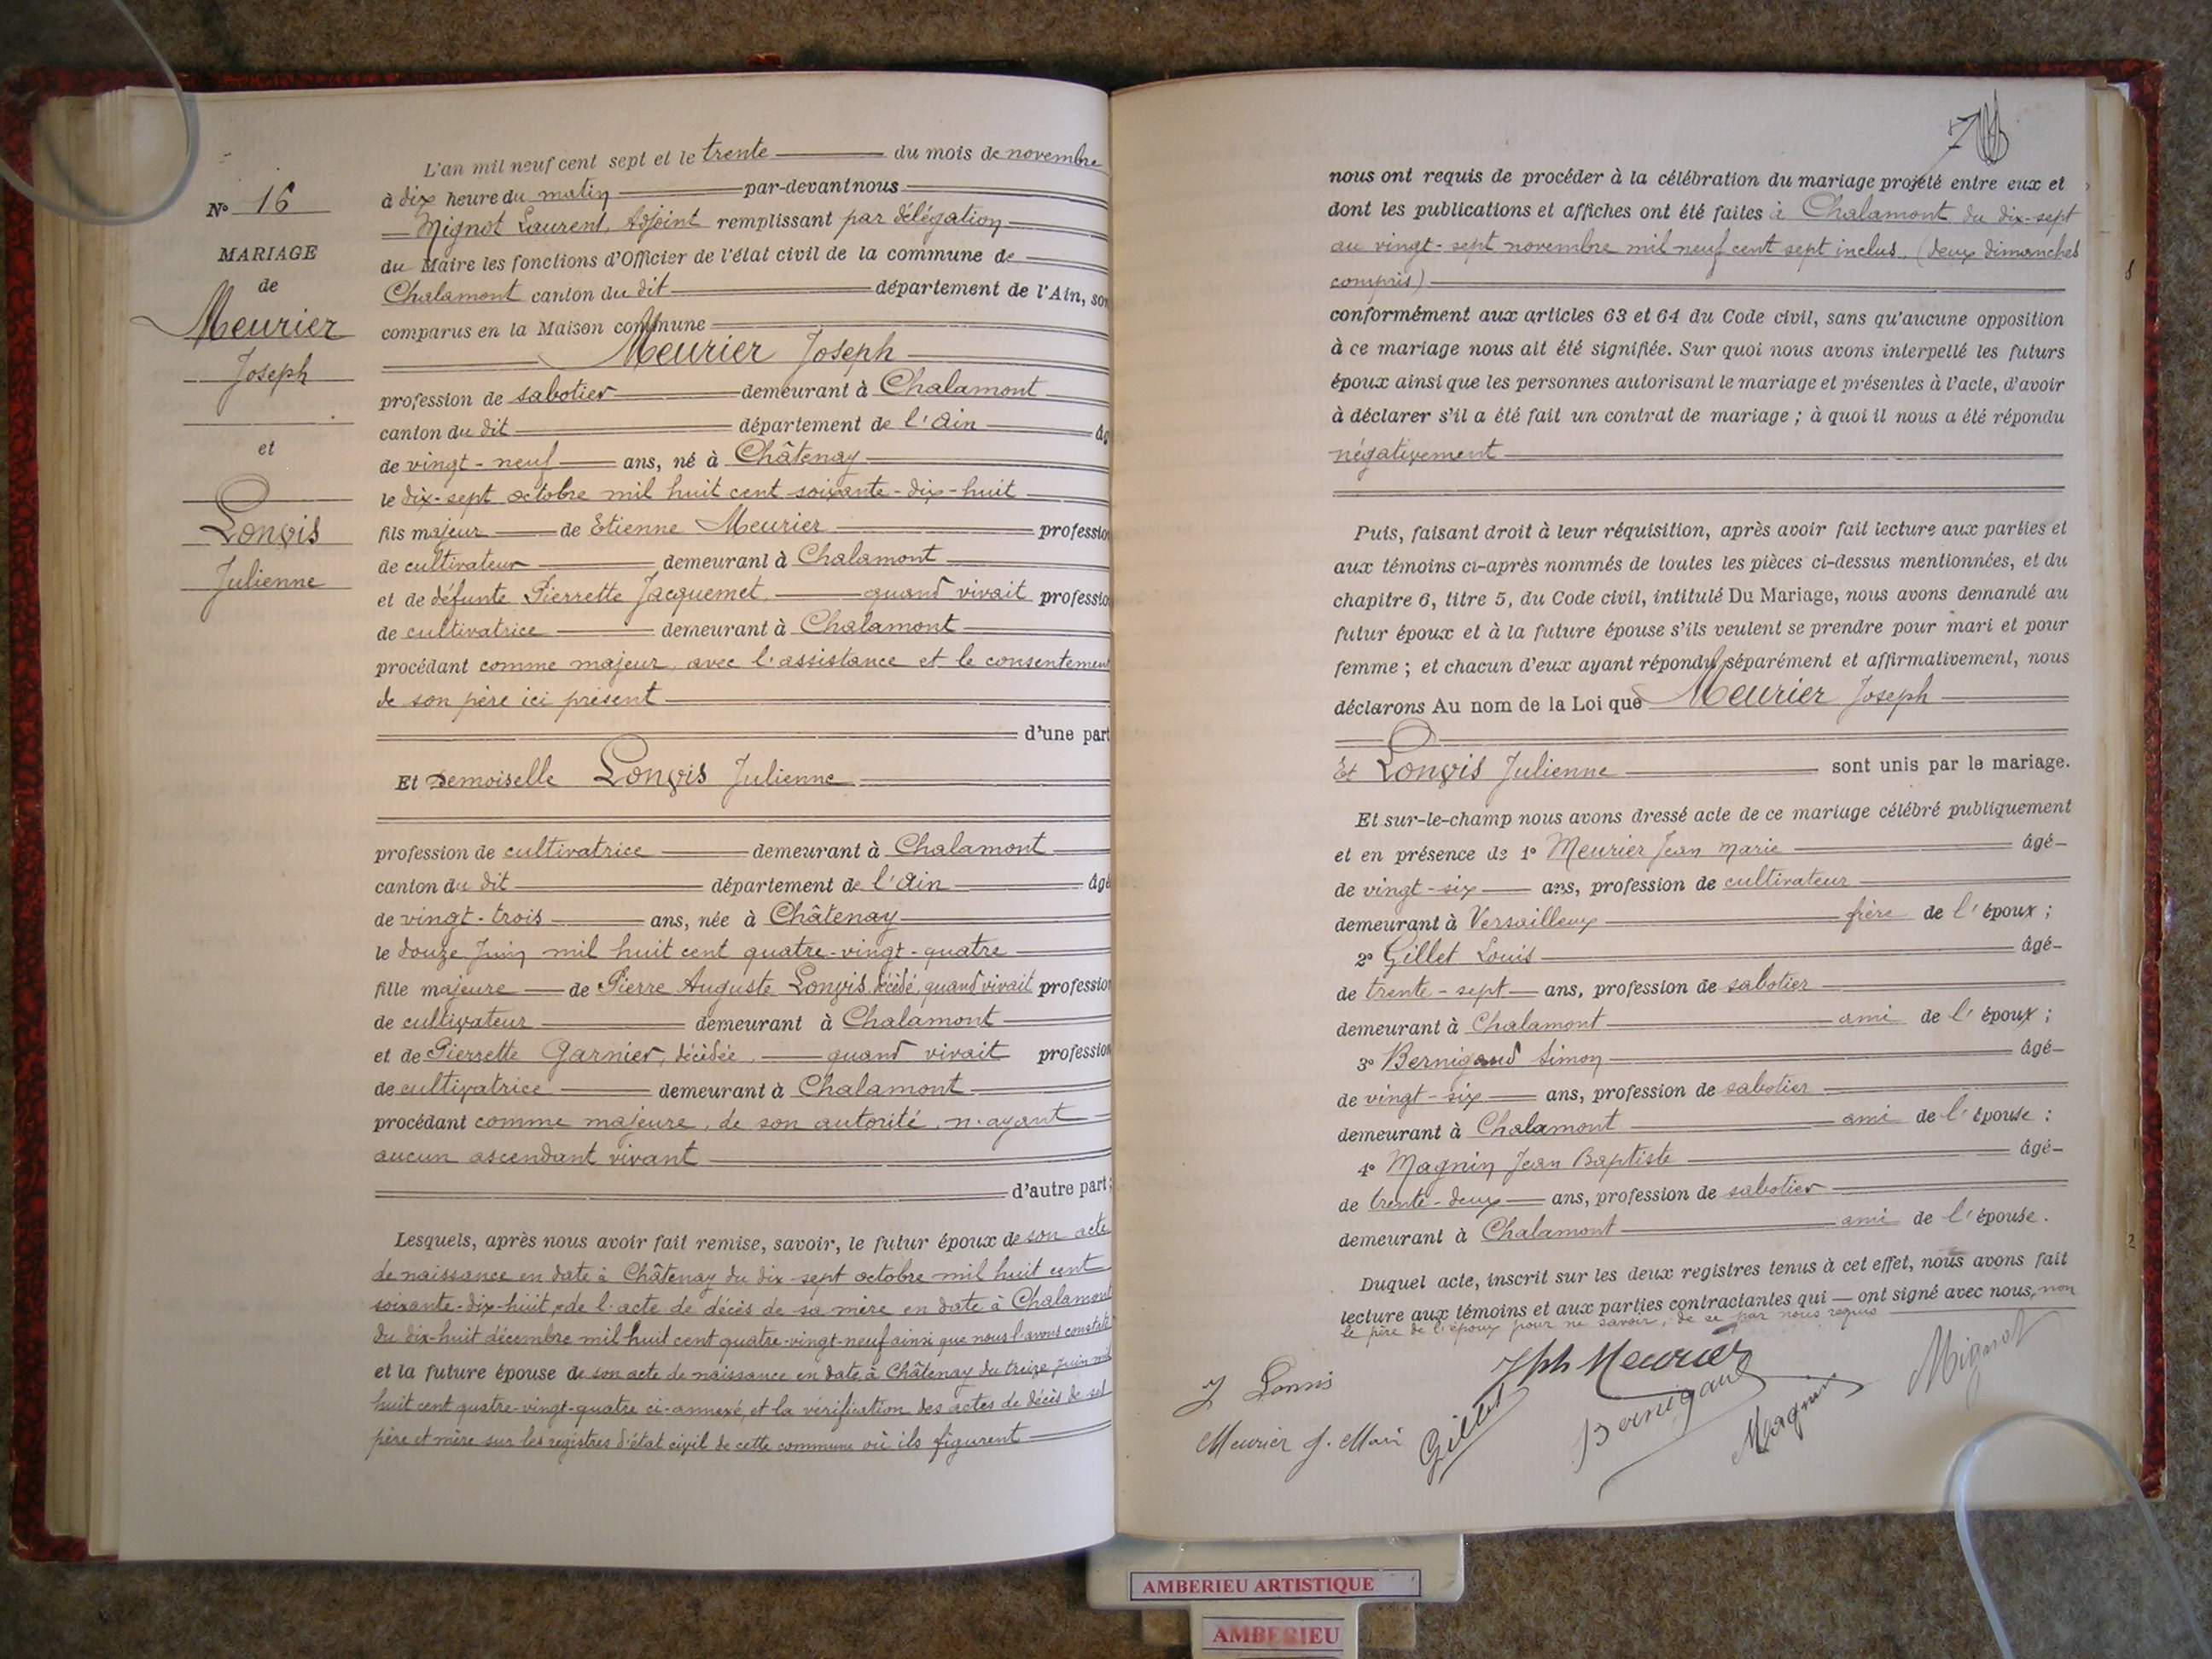 L'an mil neuf cent sept et le trente du mois de novembre
à dix heure du matin par-devant nous
Mignot Laurent, Adjoint remplissant par délégation
du Maire les fonctions d'Officier de l'état civil de la commune de
Chalamont canton du dit département de l'Ain, son
comparus en la Maison commune
Meurier Joseph
profession de sabotier demeurant à Chalamont
canton du dit département de l'Ain âg
de vingt-neuf ans, né à Châtenay
le dix-sept octobre mil huit cent soixante-dix-huit
fils majeur de Etienne Meurier profession
de cultivateur demeurant à Chalamont
et de défunte Pierrette Jacquemet, quand vivait profession
de cultivatrice demeurant à Chalamont
procédant comme majeur, avec l'assistance et le consentement
de son père ici présent
d'une part
Et Demoiselle Lonvis Julienne
profession de cultivatrice demeurant à Chalamont
canton du dit département de l'Ain âgé
de vingt-trois ans, née à Châtenay
le douze Juin mil huit cent quatre-vingt-quatre
fille majeure de Pierre Auguste Lonvis, décédé, quand vivait profession
de cultivateur demeurant à Chalamont
et de Pierrette Garnier, décédée, quand vivait profession
de cultivatrice demeurant à Chalamont
procédant comme majeure, de son autorité, n'ayant
aucun ascendant vivant
d'autre part;
Lesquels, après nous avoir fait remise, savoir, le futur époux de son acte
de naissance en date à Châtenay du dix-sept octobre mil huit cent
soixante-dix-huit, de l'acte de décès de sa mère en date à Chalamont
du dix-huit décembre mil huit cent quatre-vingt-neuf ainsi que nous l'avons constaté
et la future épouse de son acte de naissance en date à Châtenay du treize juin mil
huit cent quatre-vingt-quatre ci-annexé, et la vérification des actes de décès de ses
père et mère sur les registres d'état civil de cette commune où ils figurent
No 16
MARIAGE
de
Meurier
Joseph
et
Lonvis
Julienne
nous ont requis de procéder à la célébration du mariage projeté entre eux et
dont les publications et affiches ont été faites à Chalamont du dix-sept
au vingt-sept novembre mil neuf cent sept inclus, (deux dimanches
compris)
conformément aux articles 63 et 64 du Code civil, sans qu'aucune opposition
à ce mariage nous ait été signifiée. Sur quoi nous avons interpellé les futurs
époux ainsi que les personnes autorisant le mariage et présentes à l'acte, d'avoir
à déclarer s'il a été fait un contrat de mariage ; à quoi il nous a été répondu
négativement
Puis, faisant droit à leur réquisition, après avoir fait lecture aux parties et
aux témoins ci-après nommés de toutes les pièces ci-dessus mentionnées, et du
chapitre 6, titre 5, du Code civil, intitulé Du Mariage, nous avons demandé au
futur époux et à la future épouse s'ils veulent se prendre pour mari et pour
femme ; et chacun d'eux ayant répondu séparément et affirmativement, nous
déclarons Au nom de la Loi que Meurier Joseph
Et Lonvis Julienne sont unis par le mariage.
Et sur-le-champ nous avons dressé acte de ce mariage célébré publiquement
et en présence de 1° Meurier Jean Marie âgé
de vingt-six ans, profession de cultivateur
demeurant à Versailleux frère de l'époux ;
2° Gillet Louis âgé
de trente-sept ans, profession de sabotier
demeurant à Chalamont ami de l'époux ;
3° Bernigaud Simon âgé
de vingt-six ans, profession de sabotier
demeurant à Chalamont ami de l'épouse ;
4° Magnin Jean Baptiste âgé
de trente-deux ans, profession de sabotier
demeurant à Chalamont ami de l'épouse.
Duquel acte, inscrit sur les deux registres tenus à cet effet, nous avons fait
lecture aux témoins et aux parties contractantes qui ont signé avec nous, non
le père de l'époux pour ne savoir, de ce par nous requis
J Lonvis
Jph Meurier
Mignot
Meurier J. Mari
Gillet
Bernigaud
Magnin
AMBERIEU ARTISTIQUE
AMBERIEU